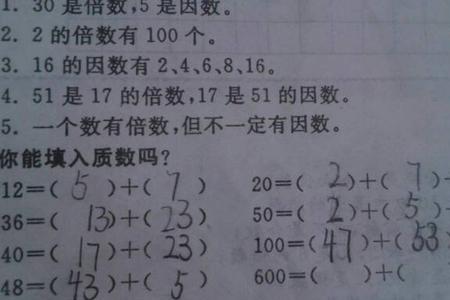 1. 30 是倍数,5 是因数。
2. 2 的倍数有 100 个。
3. 16 的因数有 2、4、6、8、16。
4. 51 是 17 的倍数,17 是 51 的因数。
5. 一个数有倍数,但不一定有因数。
你能填入质数吗?
12=( 5 )+( 7 ) 20=( 2 )+( 7 )+
36=( 13 )+( 23 ) 50=( 2 )+( 5 )+
40=( 17 )+( 23 ) 100=( 47 )+( 53
48=( 43 )+( 5 ) 600=( )+(